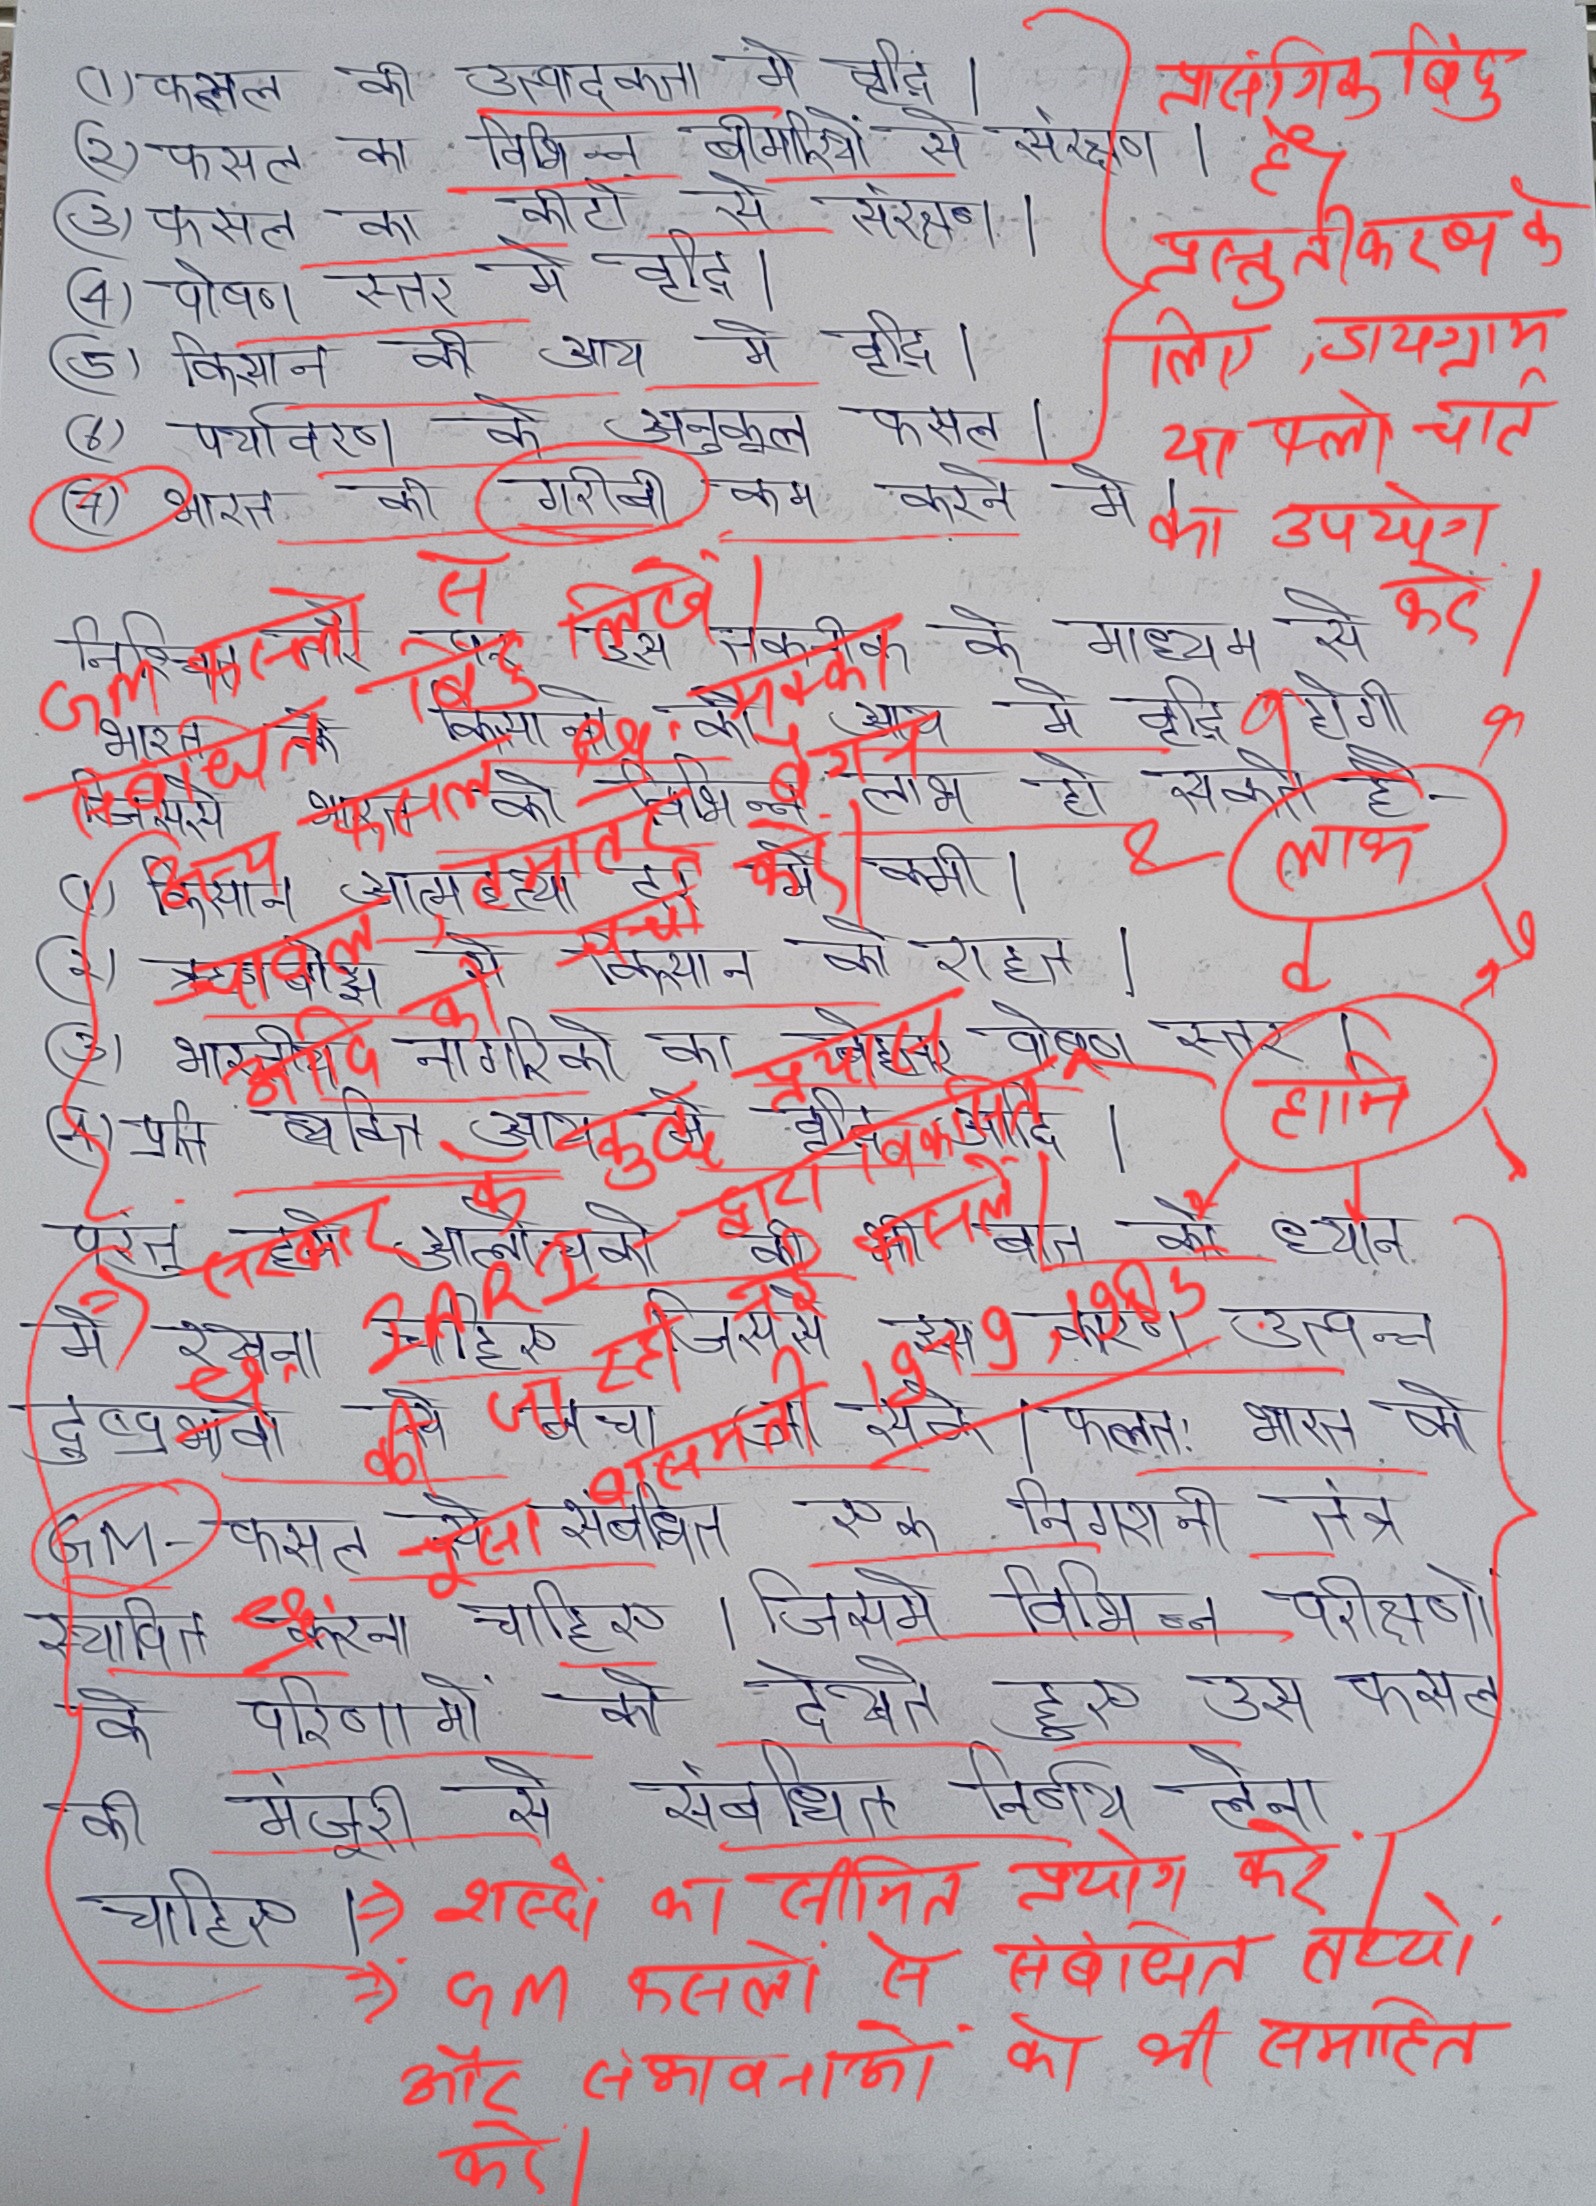 (1) फसल की उत्पादकता मे वृद्धि |
(2) फसल का विभिन्न बीमारियों से संरक्षण |
(3) फसल का कीटो से संरक्षण |
(4) पोषण स्तर मे वृद्धि |
(5) किसान की आय मे वृद्धि |
(6) पर्यावरण के अनुकूल फसल |
(7) भारत की गरीबी कम करने मे |
प्रासंगिक बिंदु
है
प्रस्तुतीकरण के
लिए, डायग्राम
या फ्लो चार्ट
का उपयोग
करे |
निश्चित तौर पर इस तकनीक के माध्यम से
भारत के किसानो की आय मे वृद्धि होगी
जिससे भारत को विभिन्न लाभ हो सकते है -
(1) किसान आत्महत्या दर मे कमी |
(2) ऋणबोझ से किसान को राहत |
(3) भारतीय नागरिको का बेहतर पोषण स्तर |
(4) प्रति व्यक्ति आय मे वृद्धि आदि |
GM फसलो से
संबंधित बिंदु लिखें |
अन्य फसल
मक्का
बैगन
चावल, टमाटर
आदि की चर्चा करे |
लाभ
हानि
परंतु हमे आलोचको की भी बात को ध्यान
मे रखना चाहिए जिससे इस कारण उत्पन्न
दुष्प्रभावो से बचा जा सके | फलतः भारत को
GM- फसल से संबंधित एक निगरानी तंत्र
स्थापित करना चाहिए | जिसमे विभिन्न परीक्षणो
के परिणामों को देखते हुए उस फसल
की मंजूरी से संबंधित निर्णय लेना
चाहिए |
सरकार के कुछ प्रयोग
द्वारा विकसित
नई फसलें |
की जा रही
पूसा बासमती 1979, 1985
⇒ शब्दों का सीमित प्रयोग करे |
⇒ GM फसलों से संबंधित तथ्यों
और संभावनाओं को भी समाहित
करे |